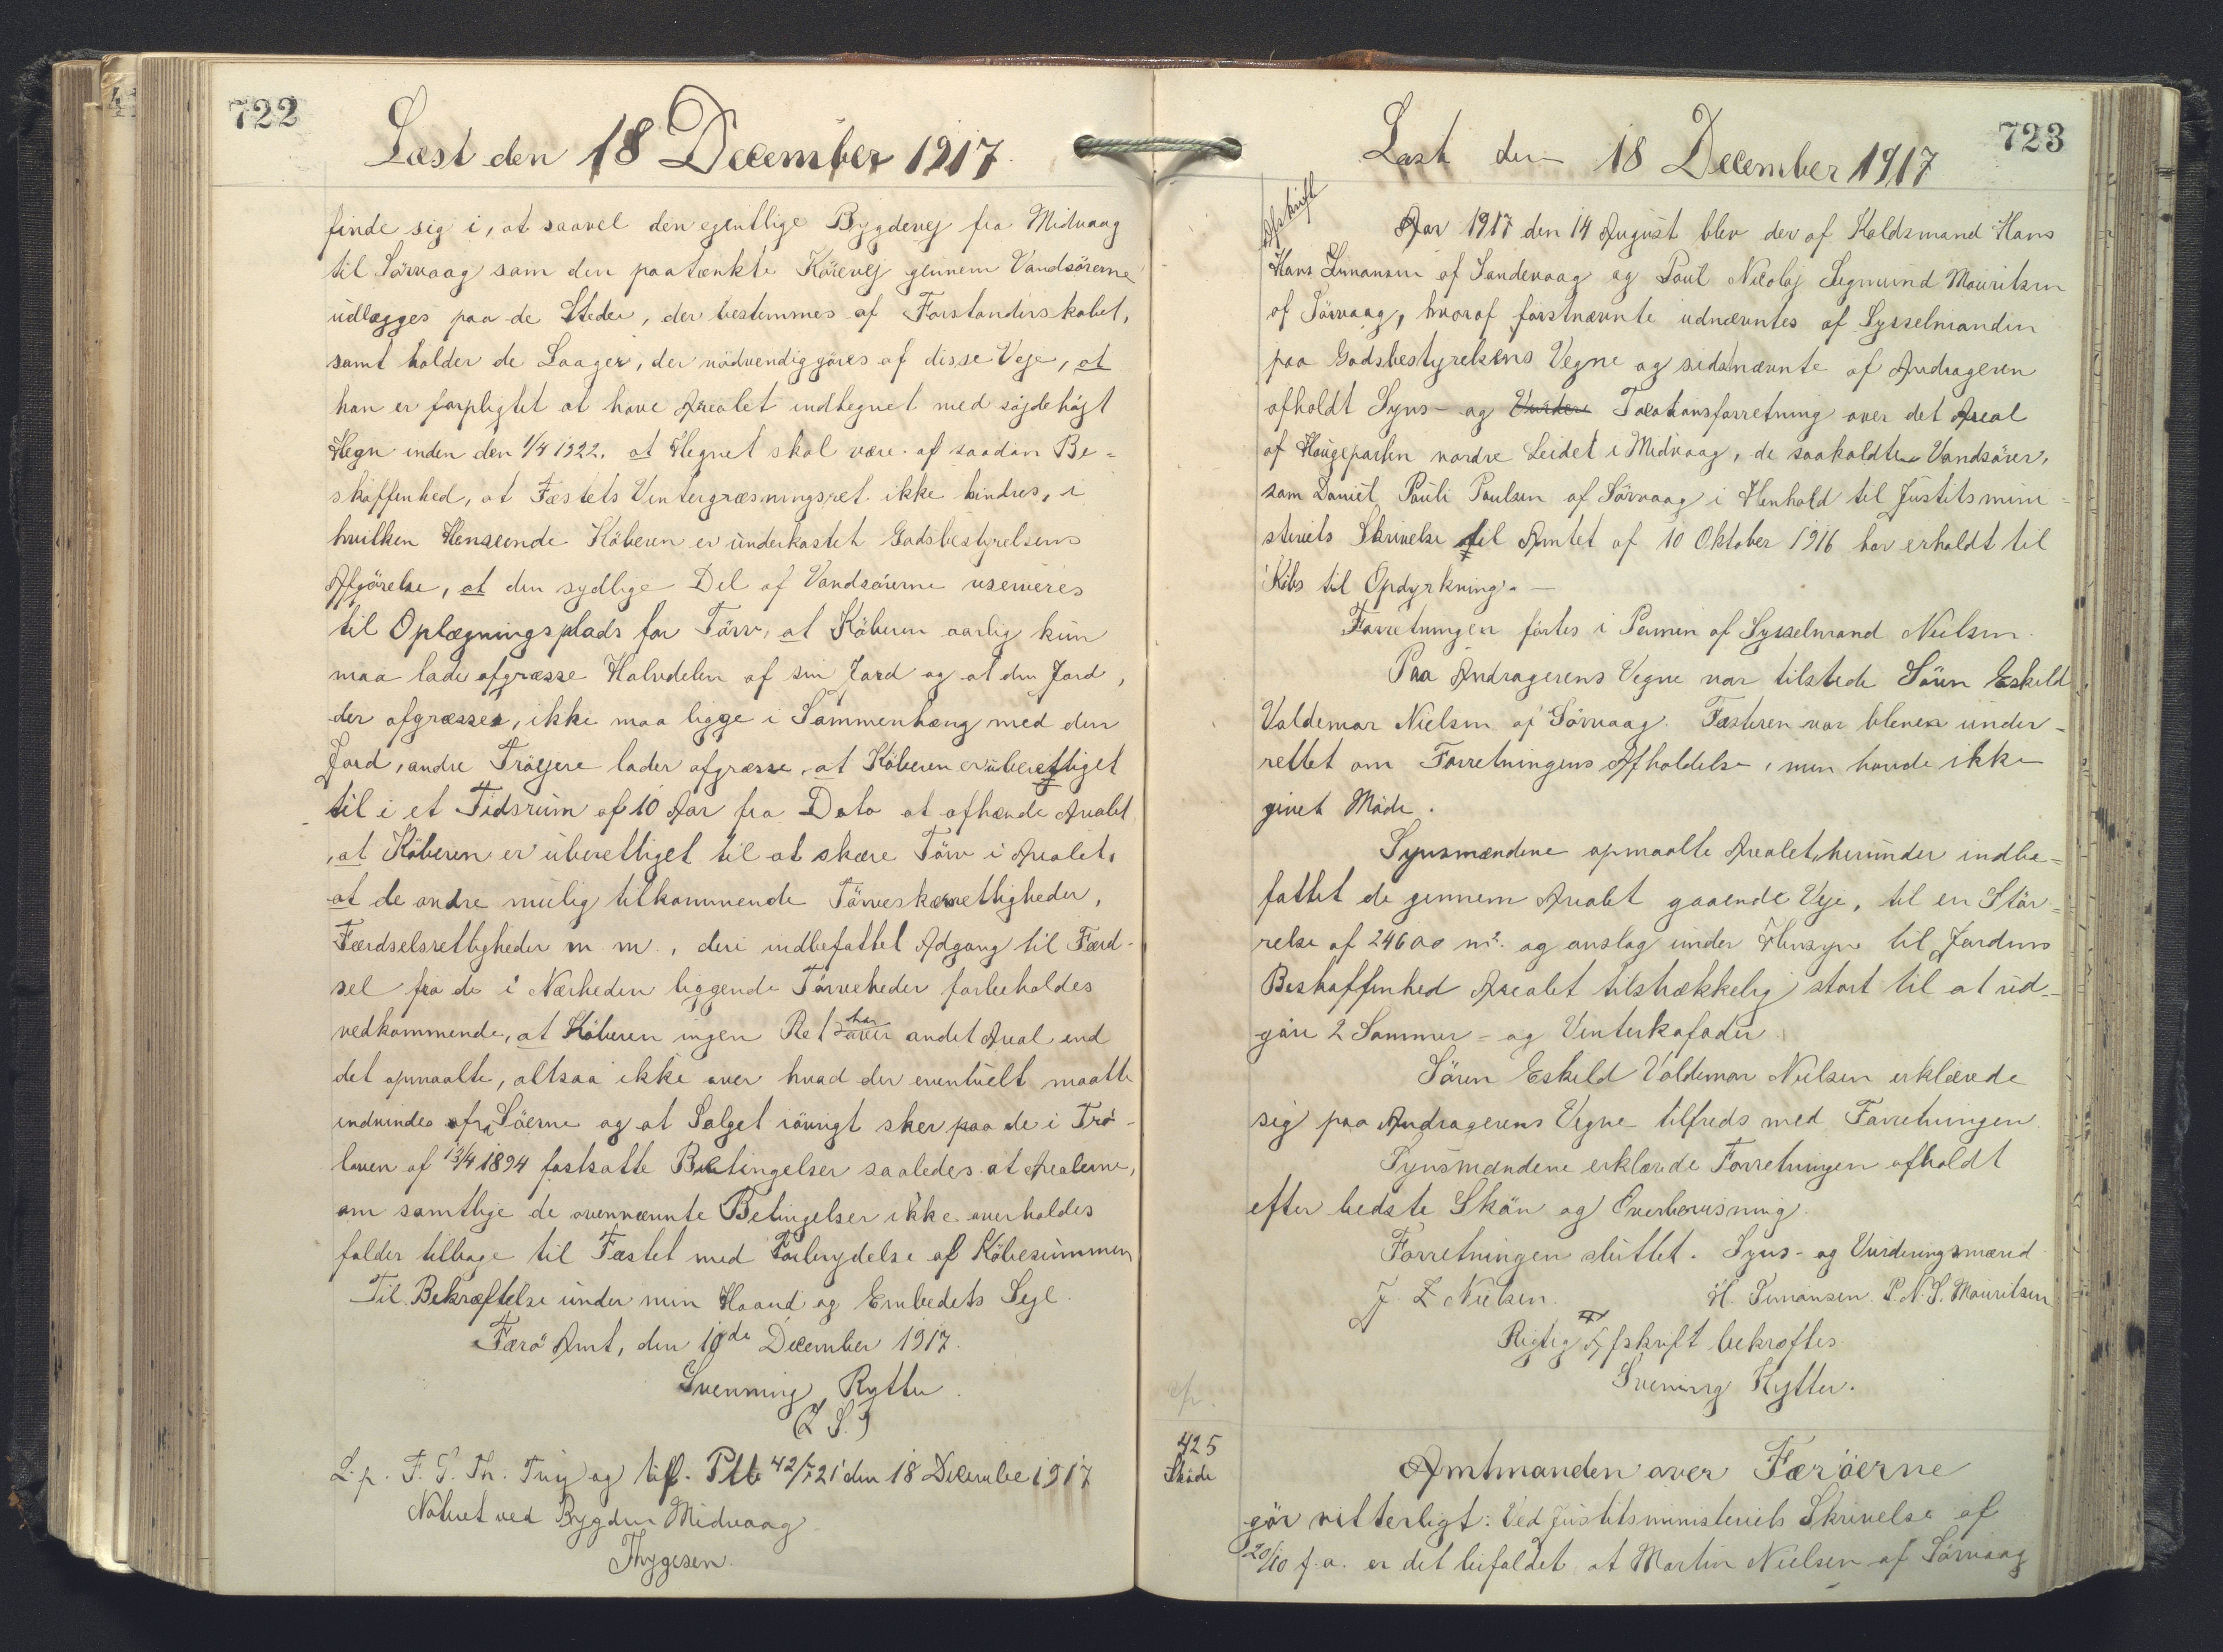 722
Læst den 18 December 1917.
finde sig i, at saavel den egentlige Bygdevej fra Midvaag
til Sörvaag som den paatænkte Körevej gennem Vandsöerne
udlægges paa de Steder, der bestemmes af Forstanderskabet,
samt holder de Laager, der nödvendiggöres af disse Veje, at
han er forpligtet at have Arealet indhegnet med söjdehöjt
Hegn inden den 1/4 1922. at Hegnet skal være af saadan Be=
skaffenhed, at Fæstets Vintergræsningsret ikke hindres, i
hvilken Henseende Köberen er underkastet Godsbestyrelsens
Afgörelse, at den sydlige Del af Vandsöerne reserveres
til Oplægningsplads for Törv, at Köberen aarlig kun
maa lade afgræsse Halvdelen af sin Jord og at den Jord,
der afgræsses, ikke maa ligge i Sammenhæng med den
Jord, andre Tröejere lader afgræsse, at Köberen er uberettiget
til i et Tidsrum af 10 Aar fra Dato at afhænde Arealet
, at Köberen er uberettiget til at skære Törv i Arealet,
at de andre mulig tilkommende Törveskærrettigheder,
Færdselsrettigheder m. m., deri indbefattet Adgang til Færd-
sel fra de i Nærheden liggende Törveheder forbeholdes
vedkommende, at Köberen ingen Ret har over andet Areal end
det opmaalte, altsaa ikke over hvad der eventuelt maatte
indvindes fra Söerne og at Salget iövrigt sker paa de i Trö-
loven af 13/4 1894 fastsatte Betingelser saaledes at Arealerne,
om samtlige de ovennævnte Betingelser ikke overholdes
falder tilbage til Fæstet med Forbrydelse af Köbesummen
Til Bekræftelse under min Haand og Embedets Segl.
Færö Amt, den 10de December 1917.
Svenning Rytter.
(L. S.)
L. p. F. S. Th. Ting og tilf. Ptb 42/721 den 18 December 1917
Noteret ved Bygden Midvaag
Thygesen.
723
Læst den 18 December 1917
Afskrift
Aar 1917 den 14 August blev der af Koldsmand Hans
Hans Simonsen af Sandevaag og Poul Nicolaj Sigmund Mouritsen
af Sörvaag, hvoraf förstnævnte udnævntes af Sysselmanden
paa Godsbestyrelsens Vegne og sidstnævnte af Andrageren
afholdt Syns- og Vurdere Taxationsforretning over det Areal
af Haugeparten nordre Leidet i Midvaag, de saakaldte Vandsöer,
som Daniel Pauli Poulsen af Sörvaag i Henhold til Justitsmini=
steriets Skrivelse til Amtet af 10 Oktober 1916 har erholdt til
Köbs til Opdyrkning. -
Forretningen förtes i Pennen af Sysselmand Nielsen.
Paa Andragerens Vegne var tilstede Sören Eskild
Valdemar Nielsen af Sörvaag. Fæsteren var bleven under-
rettet om Forretningens Afholdelse, men havde ikke
givet Möde.
Synsmændene opmaalte Arealet, herunder indbe=
fattet de gennem Arealet gaaende Veje, til en Stör=
relse af 24600 m². og anslog under Hensyn til Jordens
Beskaffenhed Arealet tilstrækkelig stort til at ud-
göre 2 Sommer- og Vinterkofoder.
Sören Eskild Valdemar Nielsen erklærede
sig paa Andragerens Vegne tilfreds med Forretningen.
Synsmændene erklærede Forretningen afholdt
efter bedste Skön og Overbevisning.
Forretningen sluttet. Syns- og Vurderingsmænd
J. L Nielsen. H. Simonsen. P. N. S. Mouritsen
Rigtig Afskrift bekræftes
Svening Rytter.
425
Sköde
Amtmanden over Færöerne
gör vitterligt: Ved Justitsministeriets Skrivelse af
20/10 f.a. er det bifaldet at Martin Nielsen af Sörvaag